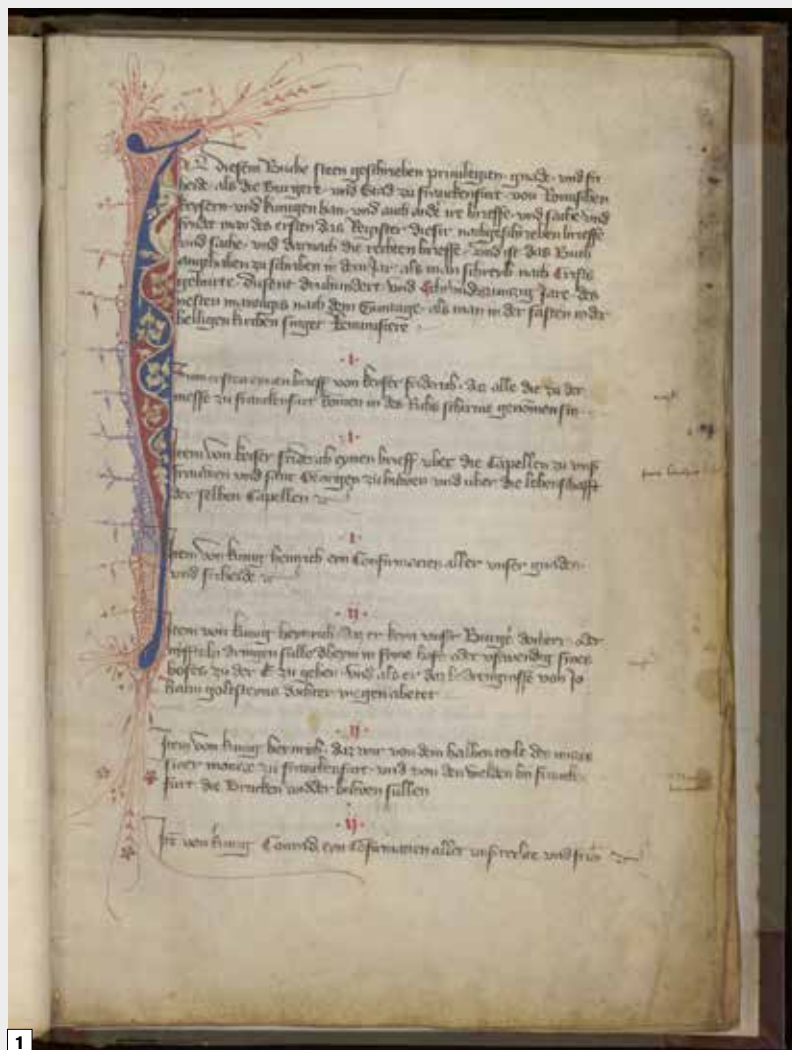 In diesem Buche steen geschrieben privilegien gnade vnd fri
heide als die Burgere vnd Stad zu Franckenfurt von Romschen
keysern vnd kunigen han vnd auch ander ire brieffe vnd sache vnd
findet man des ersten das Register dieser nachgeschrieben brieffe
vnd sache vnd darnach die rechten brieffe vnd ist das Buch
angehaben zu schriben in dem Jar als man schreib nach Cristi
geburte Dusent druhundert vnd Jare des
nesten mandages nach dem Suntage als man in der fasten in der
heiligen kirchen singet Reminiscere
I
Zum ersten eynen brieff von keiser friderich daz alle die zu der
messe zu Franckenfurt komen in des Richs schirme genomen sin
I
Item von keiser friderich eynen brieff vber die Capellen zu vnser
frauwen vnd sant Georgen zu buwen vnd vber die lehenschafft
der selben Capellen
I
Item von kunig heinrich ein Confirmacien aller vnser gnaden
vnd friheide
II
Item von kunig heinrich daz er kein vnser Burger dochter oder
nyfteln dringen sulle in sime hofe oder vswendig sines
hofes zu der E zu geben vnd als er daz von Jo
hann goltsteins dochter wegen abetet
II
Item von kunig heinrich daz wir von dem halben teile der
moncze zu Franckenfurt vnd von den welden by Franck
furt die Brucken widder buwen sullen
II
Item von kunig Conrad ein Confirmacien aller vnser rechte vnd
1